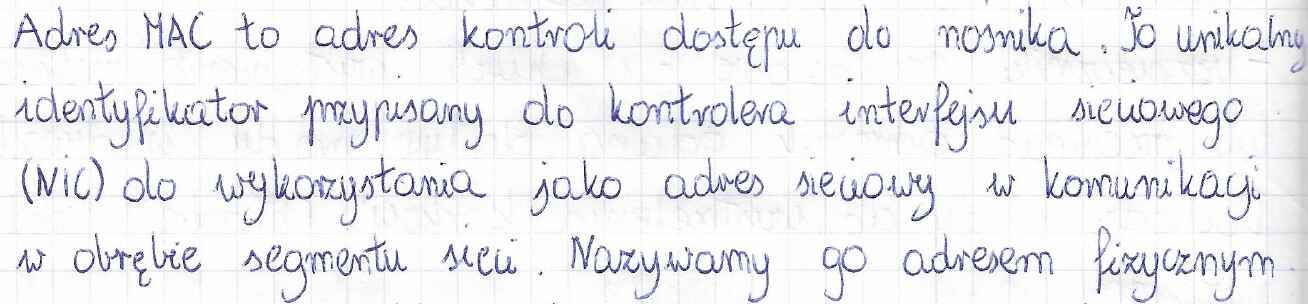 Adres MAC to adres kontroli dostępu do nosnika. To unikalny
identyfikator przypisany do kontrolera interfejsu sieciowego
(NiC) do wykorzystania jako adres sieciowy w komunikacji
w obrębie segmentu sieci. Nazywamy go adresem fizycznym